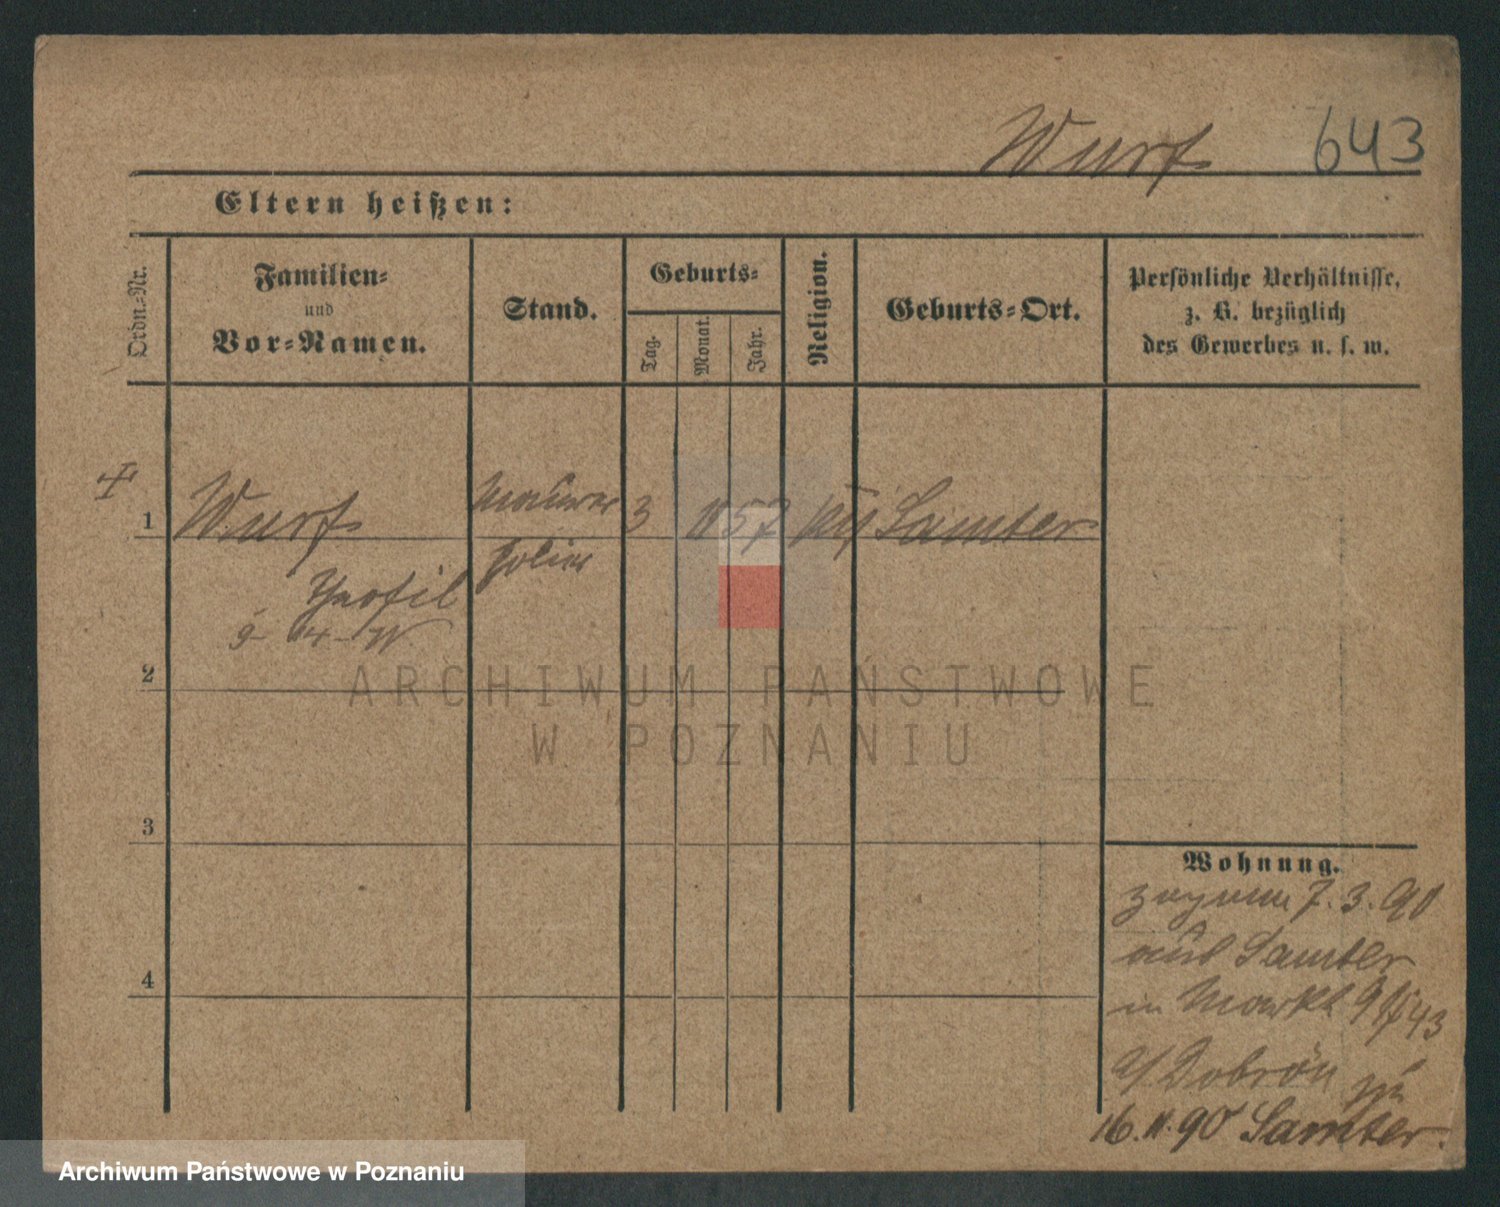 Wurf 643
Eltern heißen:
Ordn.-Nr.
Familien-
und
Vor-Namen.
Stand.
Geburts-
Tag.
Monat.
Jahr.
Religion.
Geburts-Ort.
Persönliche Verhältnisse,
z. B. bezüglich
des Gewerbes u. s. w.
1 Wurf Maurer 3 11 57 Samter
Polier
Theofil
2
ARCHIWUM PAŃSTWOWE
W POZNANIU
3
Wohnung.
7.3.90
aus Samter
4
in Markt 9 43
Dobrön zu
16.11.90 Samter.
Archiwum Państwowe w Poznaniu